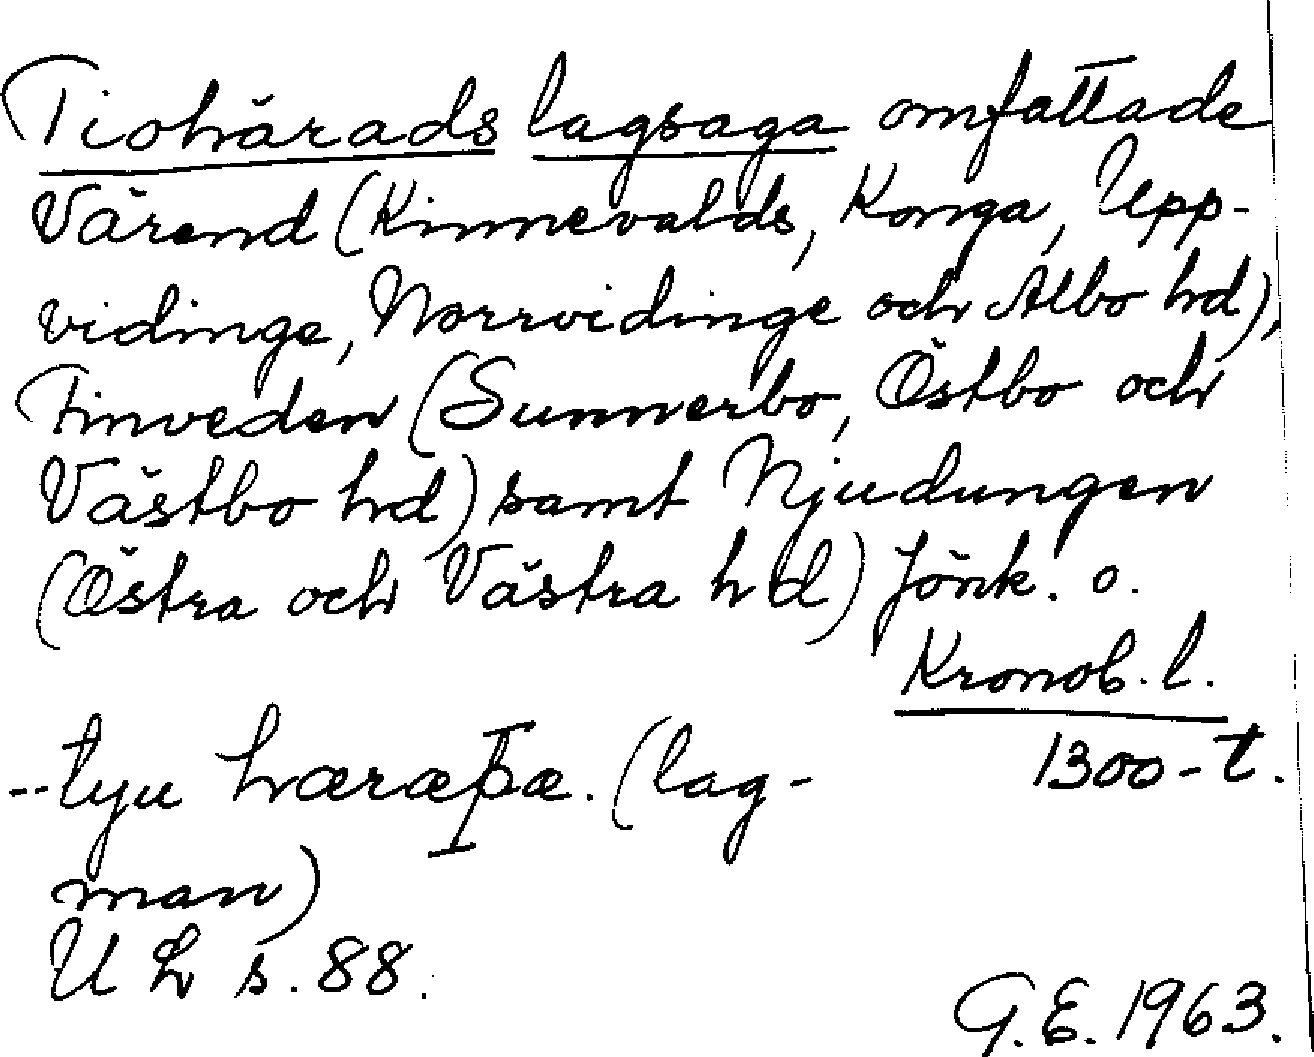 Tiohärads lagsaga omfattade
Värend (Kinnevalds, Konga, Upp-
vidinge, Norrvidinge och Albo hd),
Finveden (Sunnerbo, Östbo och
Västbo hd) samt Njudungen
(Östra och Västra hd) Jönk. o.
Kronob. l.
1300-t.
--tyu hæræþæ. (lag-
man)
U L s. 88.
G.E. 1963.